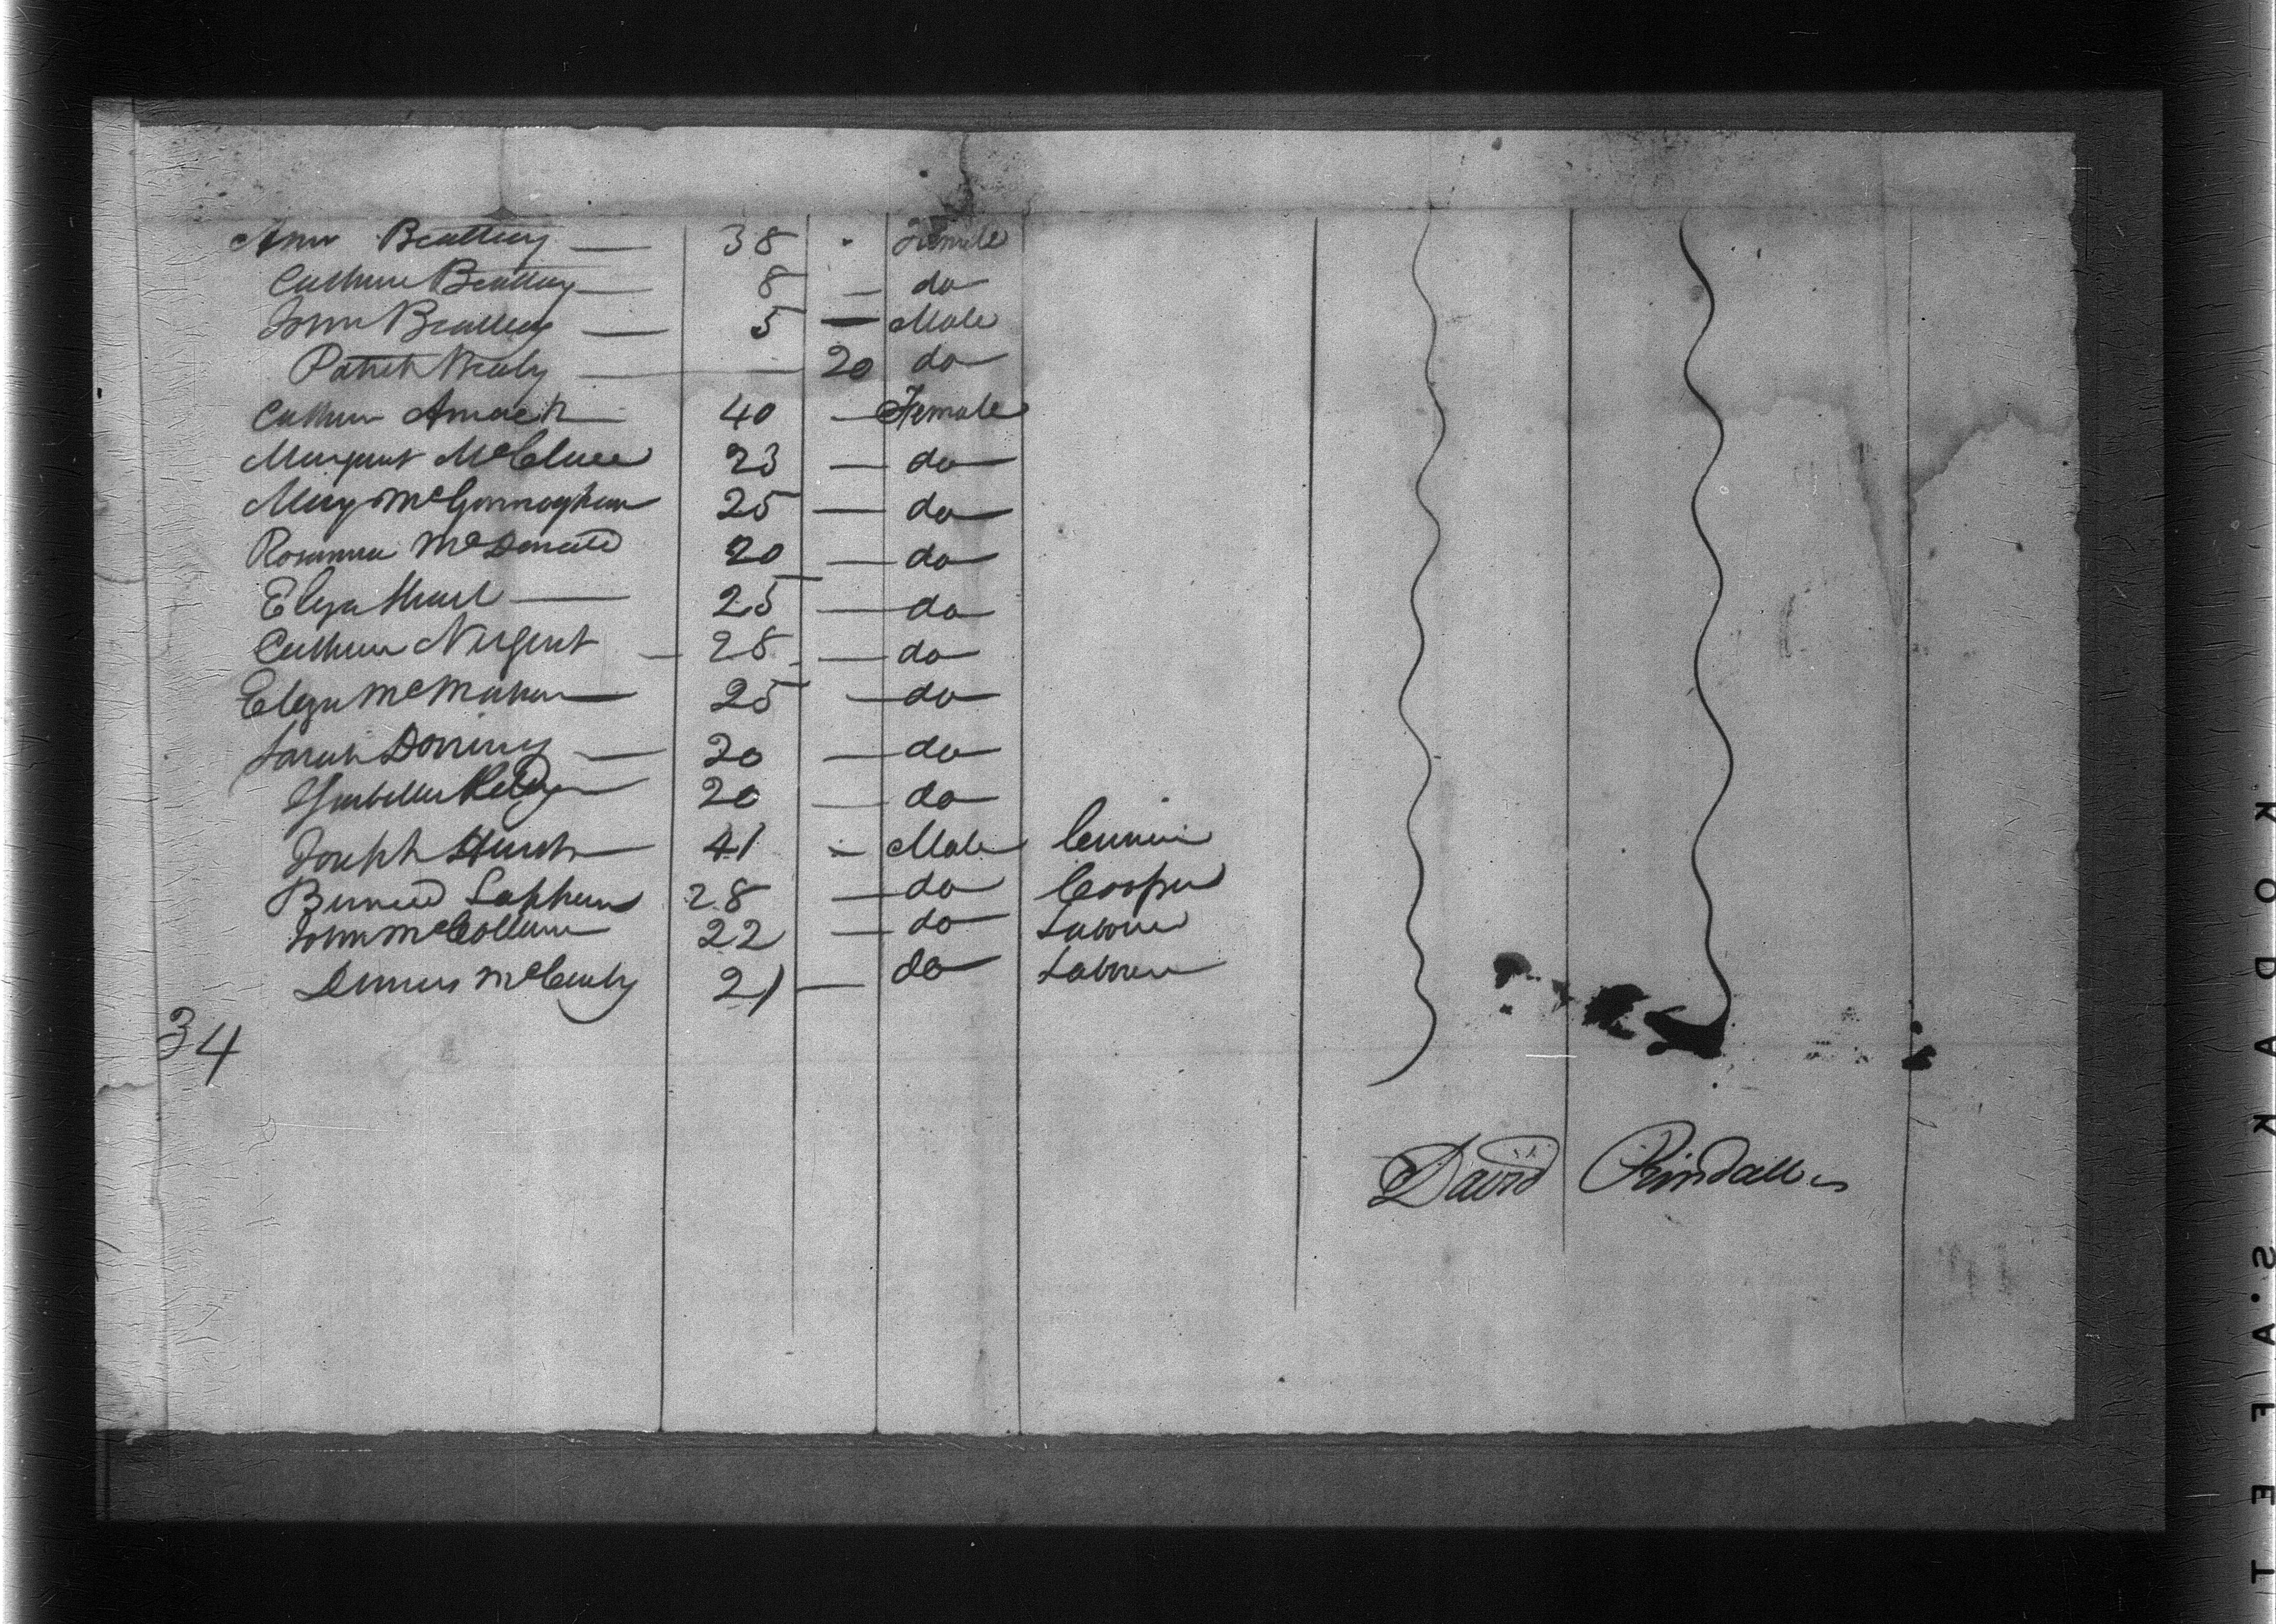 Ann Beattey — 38 . Female
Catherine Beattey — 8 — do
John Beattey — 5 — Male
Patrick — 20 do
Catherine 40 — Female
Margaret McClure 23 — do
Mary McGonnaghan 25 — do
Rosanna McDonald 20 — do
Eliza — 25 — do
Catherine Nugent — 28 — do
Eliza McMahan 25 — do
Sarah — 20 — do
Isabella 20 — do
Joseph 41 — Male
Bernard 28 — do Cooper
John McCollum 22 — do Labourer
Dennis 21 — do Labourer
34
David
KODAK S.A.FET